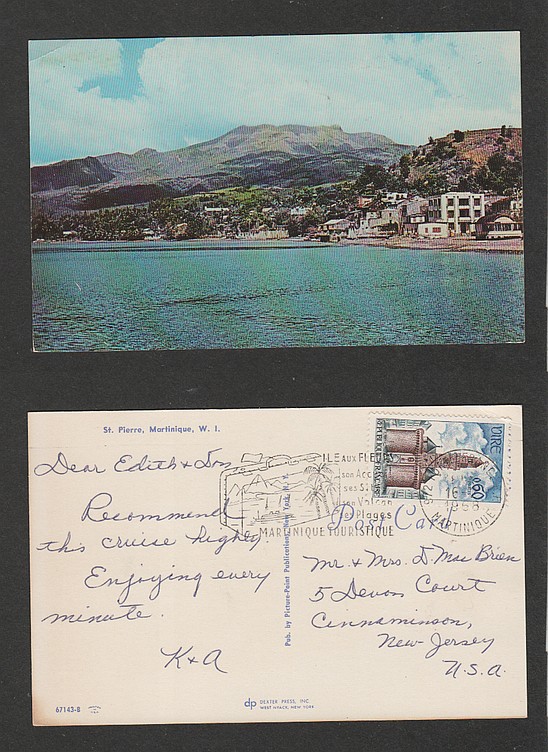 St. Pierre, Martinique, W. I.
Dear Edith & Don
Recommend
this cruise highly
Enjoying every
minute.
K & A
Pub. by Picture-Point Publications, New York, N. Y.
ILE AUX FLEURS
son
ses
son Volcan
ses Plages
MARTINIQUE TOURISTIQUE
Post Card
REPUBLIQUE FRANCAISE
VIRE
0,60
972
16
1968
MARTINIQUE
Mr. & Mrs. D. Mac Brien
5 Devon Court
Cinnaminson,
New Jersey
U.S.A.
67143-B
dp DEXTER PRESS, INC.
WEST NYACK, NEW YORK